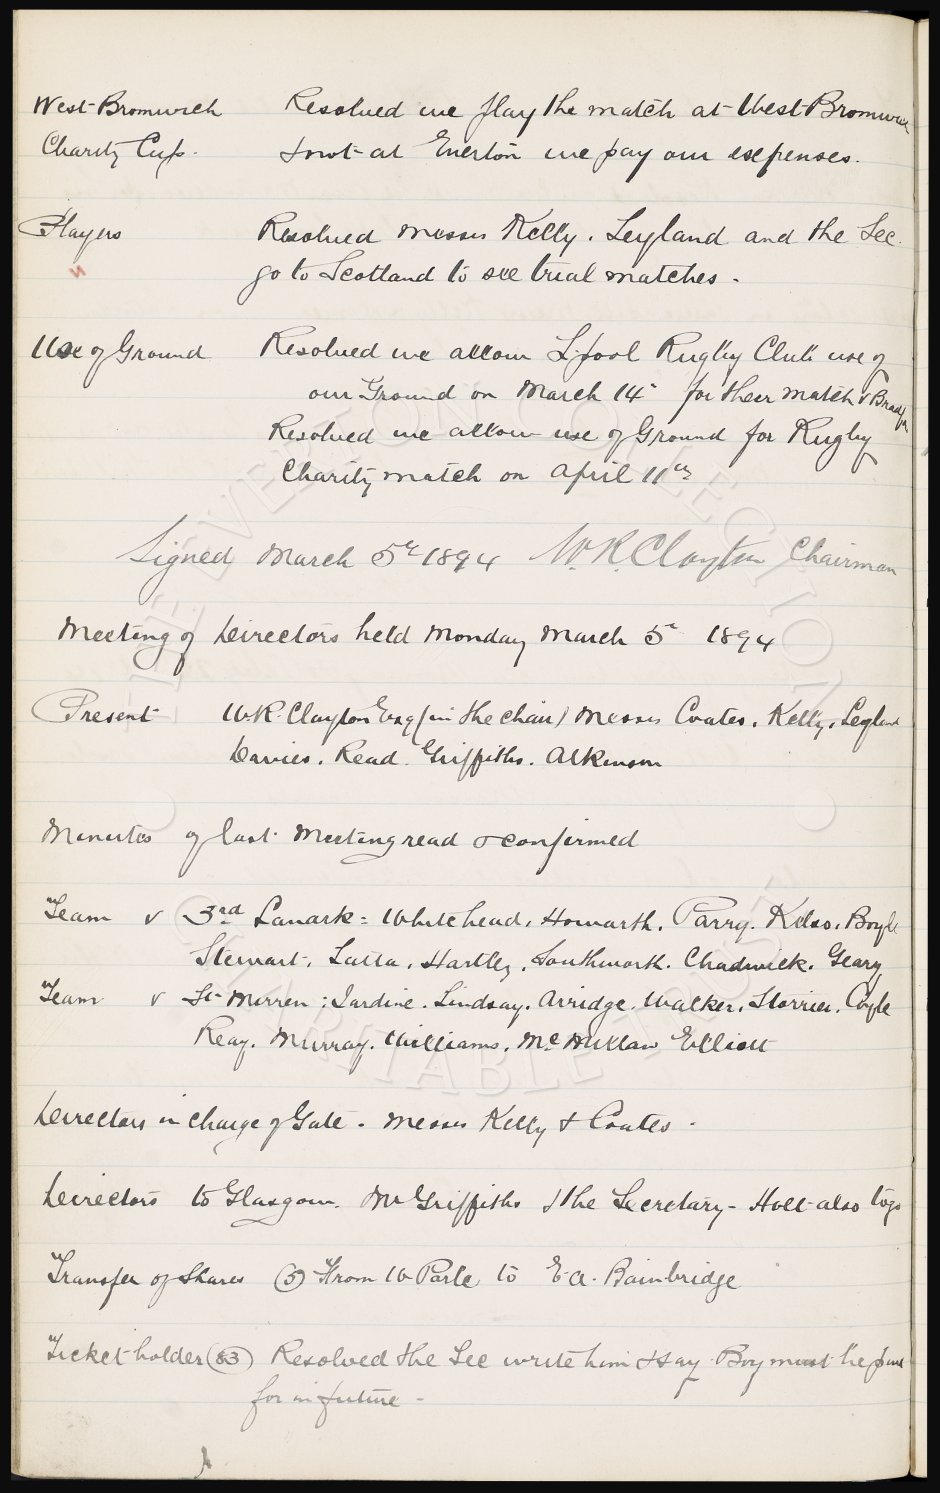 West Bromwich Resolved we play the match at West Bromwich
Charity Cup. & not at Everton we pay our expenses.
Players Resolved Messrs Kelly. Leyland and the Sec.
go to Scotland to see trial matches.
Use of Ground Resolved we allow L'pool Rugby Club use of
our Ground on March 14th for their match v Bradford
Resolved we allow use of Ground for Rugby
Charity match on April 11th
Signed March 5th 1894 W.R. Clayton Chairman
Meeting of Directors held Monday March 5th 1894
Present W R. Clayton Esq (in the chair) Messrs Coates. Kelly. Leyland
Davies. Read. Griffiths. Atkinson
Minutes of last Meeting read & confirmed
Team v 3rd Lanark = Whitehead. Howarth. Parry. Kelso. Boyle
Stewart. Latta. Hartley. Southworth. Chadwick. Geary
Team v St Mirren; Jardine. Lindsay. Arridge. Walker. Storrier. Coyle
Reay. Murray. Williams. McMillan Elliott
Directors in charge of Gate. Messrs Kelly & Coates.
Directors to Glasgow. Mr Griffiths & the Secretary - Holt also to go
Transfer of Shares (5) From W Parle to E.A. Bainbridge
Ticket holder (83) Resolved the Sec write him & say Boy must be paid
for in future -
THE EVERTON COLLECTION CHARITABLE TRUST